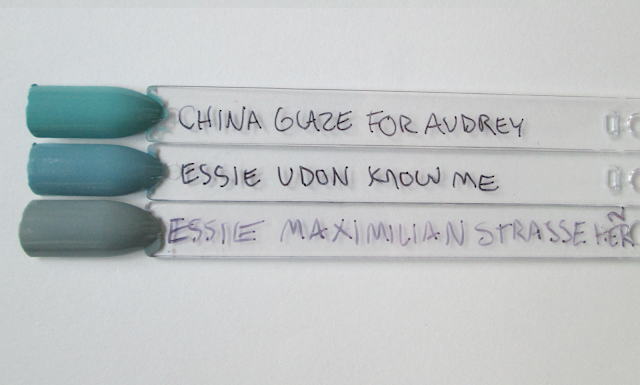 CHINA GLAZE FOR AUDREY
ESSIE UDON KNOW ME
ESSIE MAXIMILIAN STRASSE HER